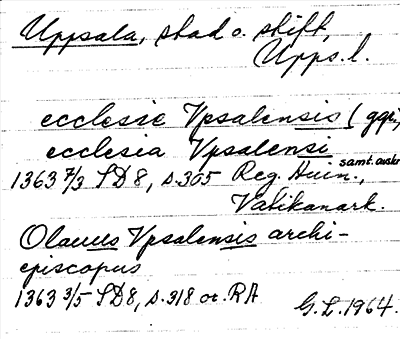 Uppsala, stad o. stift,
Upps.l.
ecclesie Vpsalensis (ggr),
ecclesia Vpsalensi
1363 7/3 SD8, s.305 Reg. Huin., samt. avskr.
Vatikanark.
Olauus Vpsalensis archi-
episcopus
1363 3/5 SD8, s.318 or. RA
G.L.1964.